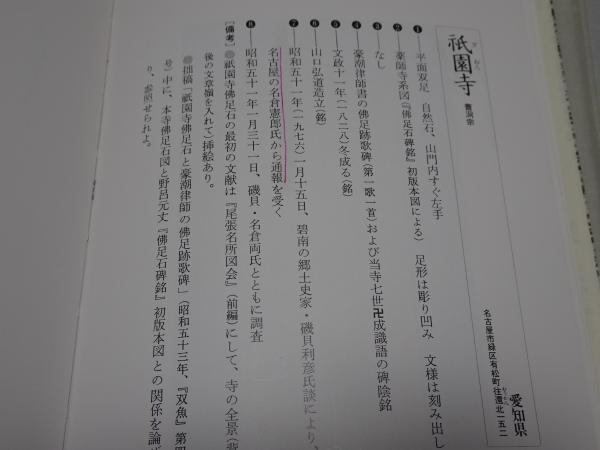 愛知県
名古屋市緑区有松町往還北一五二
祇園寺 曹洞宗
ぎおん
❶ 平面双足 自然石、山門内すぐ左手
❷ 薬師寺系図(『佛足石碑銘』初版本図による) 足形は彫り凹み 文様は刻み出し
❸ なし
❹ 豪潮律師書の佛足跡歌碑(第一歌一首)および当寺七世卍成識語の碑陰銘
❺ 文政十一年(一八二八)冬成る(銘)
❻ 山口弘道造立(銘)
❼ 昭和五十一年(一九七六)一月十五日、碧南の郷土史家・磯貝利彦氏談により、
名古屋の名倉憲郎氏から通報を受く
❽ 昭和五十一年一月三十一日、磯貝・名倉両氏とともに調査
[備考] ◉祇園寺佛足石の最初の文献は『尾張名所図会』(前編)にして、寺の全景(背
後の文章嶺を入れて)挿絵あり。
◉拙稿「祇園寺佛足石と豪潮律師の佛足跡歌碑」(昭和五十三年、『双魚』第四
号)中に、本寺佛足石図と野呂元丈『佛足石碑銘』初版本図との関係を論ぜ
り、参照せられよ。